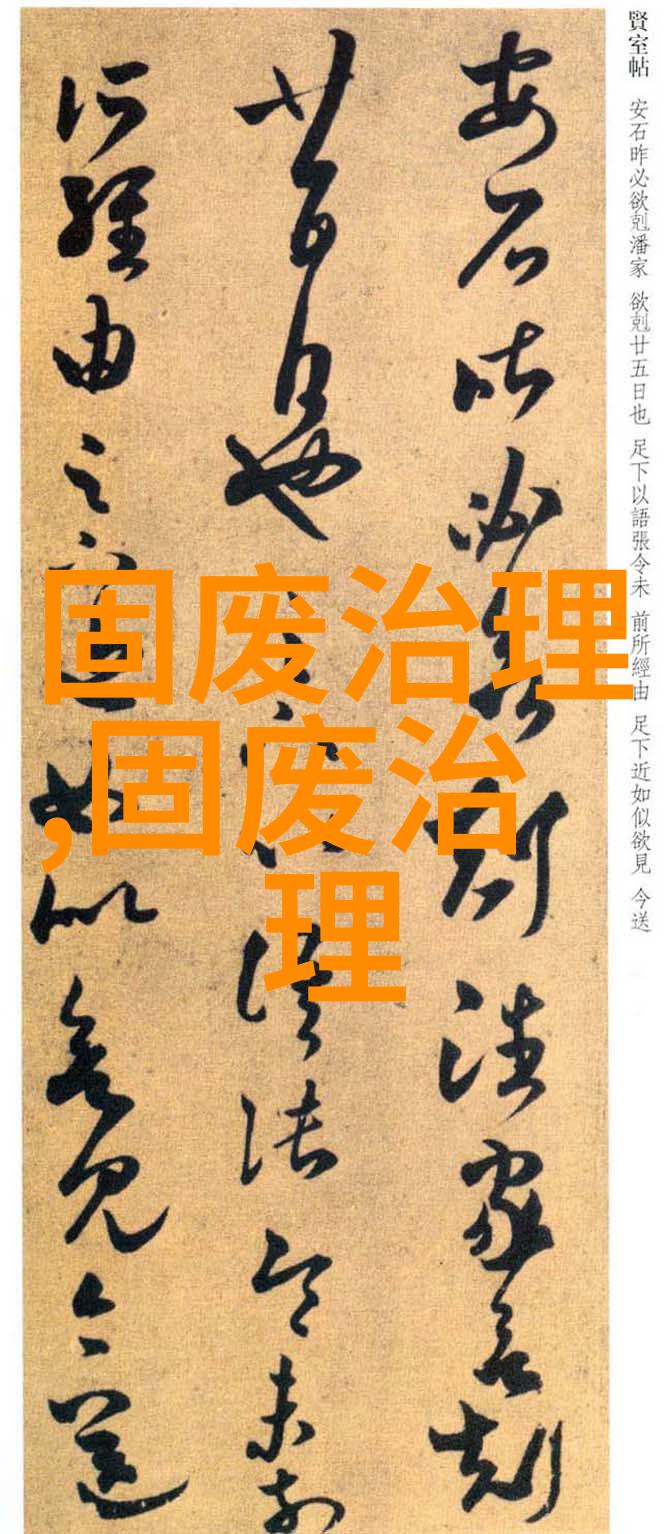 賢室帖 安石昨必欲剋潘家 欲剋廿五日也 足下以語張令未 前所經由 足下近如似欲見 今送
安石昨必欲剋潘家欲剋
廿五日也足下以語張令未前
所經由足下近如似欲見今送
固废治理
,固废治
理